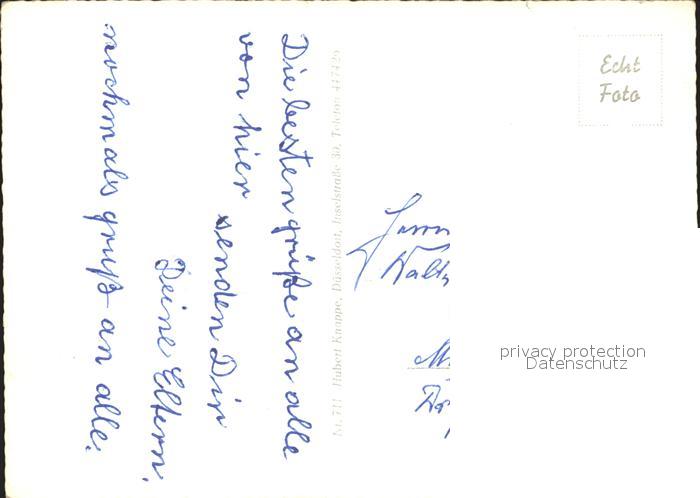 Die besten grüße an alle
von hier senden Dir
Deine Eltern.
nochmals gruß an alle.
Hubert Knappe, Düsseldorf, Inselstraße 30, Telefon
Echt
Foto
Herrn
privacy protection
Datenschutz